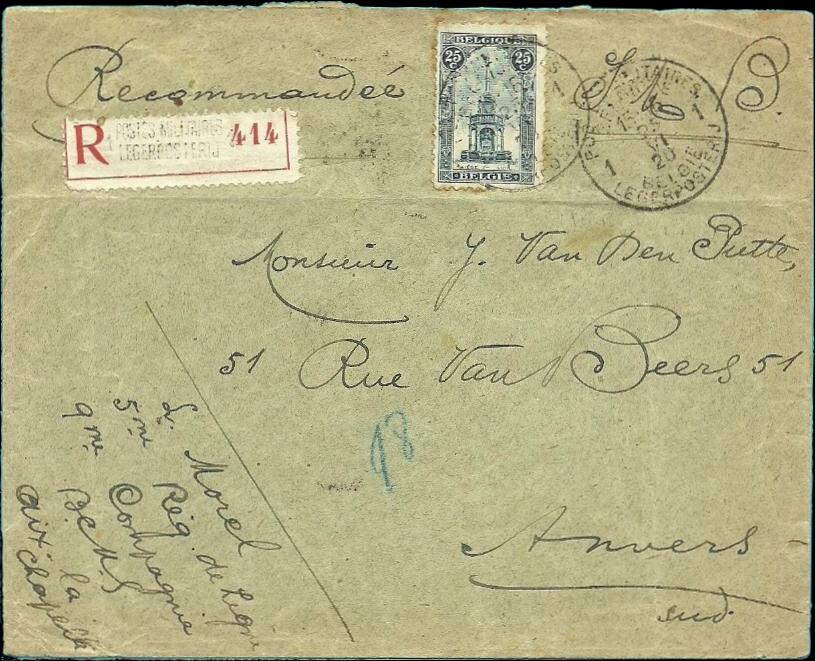 Recommandée
S.M. B
R POSTES MILITAIRES 414
LEGERPOSTERIJ
BELGIQUE
25 C 25 C
BELGIË
POSTES MILITAIRES BELGIQUE
1 1
20
BELGIE
LEGERPOSTERIJ
Monsieur J. Van Den Putte,
51 Rue Van Beers 51
18
Anvers
sud.
L. Morel
5me Rég. de Ligne
9me Compagnie
B.C.M.S
aix la
Chapelle